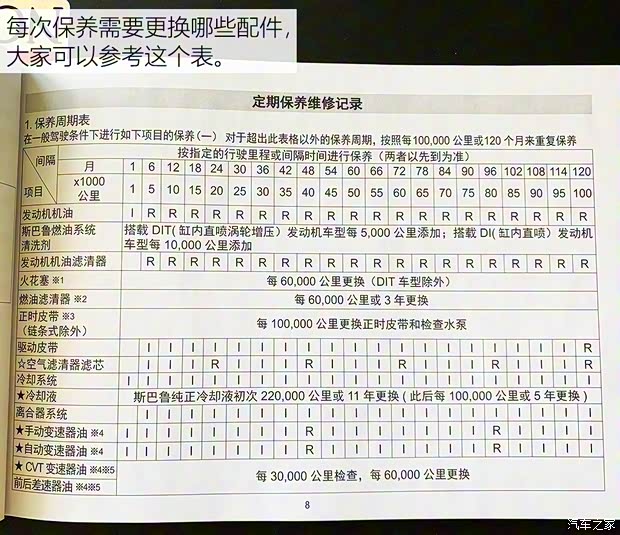 每次保养需要更换哪些配件，
大家可以参考这个表。
定期保养维修记录
1. 保养周期表
在一般驾驶条件下进行如下项目的保养(一) 对于超出此表格以外的保养周期，按照每100,000 公里或120 个月来重复保养
间隔 项目 按指定的行驶里程或间隔时间进行保养（两者以先到为准）
月 1 6 12 18 24 30 36 42 48 54 60 66 72 78 84 90 96 102 108 114 120
x1000 公里 1 5 10 15 20 25 30 35 40 45 50 55 60 65 70 75 80 85 90 95 100
发动机机油 I R R R R R R R R R R R R R R R R R R R R
斯巴鲁燃油系统清洗剂 搭载 DIT( 缸内直喷涡轮增压）发动机车型每 5,000 公里添加；搭载 DI( 缸内直喷）发动机
车型每 10,000 公里添加
发动机机油滤清器 R R R R R R R R R R R R R R R R R R R R
火花塞 ※1 每 60,000 公里更换（DIT 车型除外）
燃油滤清器 ※2 每 60,000 公里或 3 年更换
正时皮带 ※3
（链条式除外） 每 100,000 公里更换正时皮带和检查水泵
驱动皮带 I I I I I I I I I I I I I I I I I I I R
☆空气滤清器滤芯 I I I R I I I R I I I R I I I R I I I R
冷却系统 I I I I I I I I I I I I I I I I I I I I I
★冷却液 斯巴鲁纯正冷却液初次 220,000 公里或 11 年更换 ( 此后每 100,000 公里或 5 年更换 )
离合器系统 I I I I I I I I I I I I I I I I I I I I
★手动变速器油 ※4 I I I I I I I I R I I I I I I I R I I I I
★自动变速器油 ※4 I I I I I I I I R I I I I I I I R I I I I
★ CVT 变速器油 ※4※5 每 30,000 公里检查，每 60,000 公里更换
前后差速器油 ※4※5
8
汽车之家